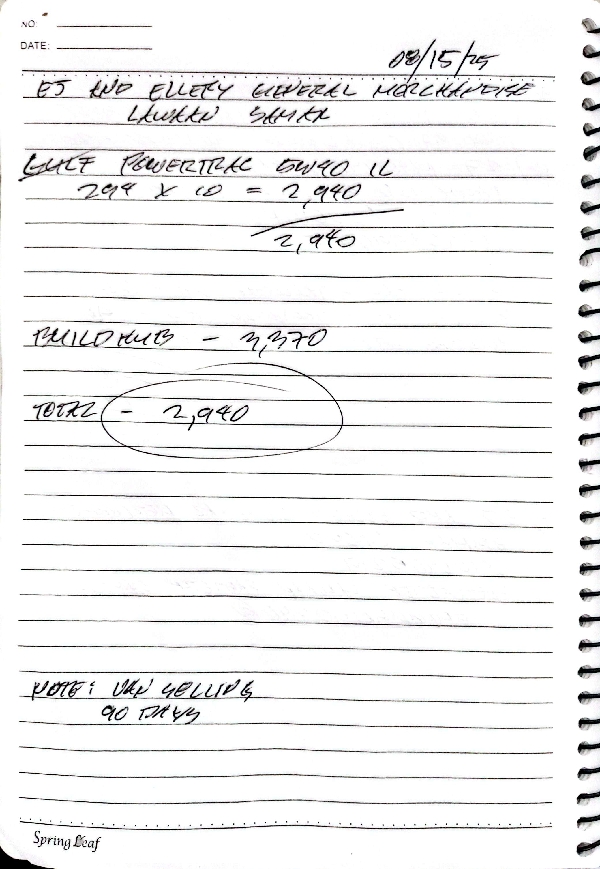 NO:
DATE:
08/15/25
EJ AND ELLEFY GENERAL MERCHANDISE
LAWAAN SAMAR
GULF POWERTRAC 5W40 1L
294 x 10 = 2,940
2,940
BUILDHUB - 3,370
TOTAL - 2,940
NOTE: VAN SELLING
90 DAYS
Spring Leaf